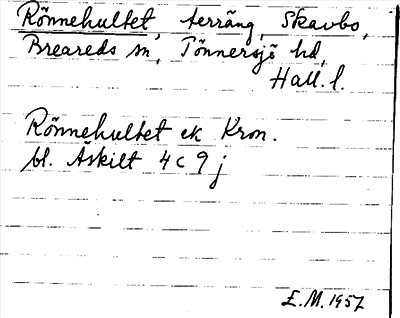 Rönnehultet, terräng, Skavbo,
Breareds sn, Tönnersjö hd,
Hall. l.
Rönnehultet ek Kron.
bl. Åskilt 4 c 9 j
E.M. 1957